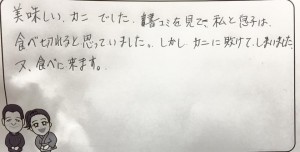 美味しい、カニ でした。書コミを見て、私と息子は、
食べ切れると思っていました。しかし カニに敗けてしまいました
又、食べに来ます。